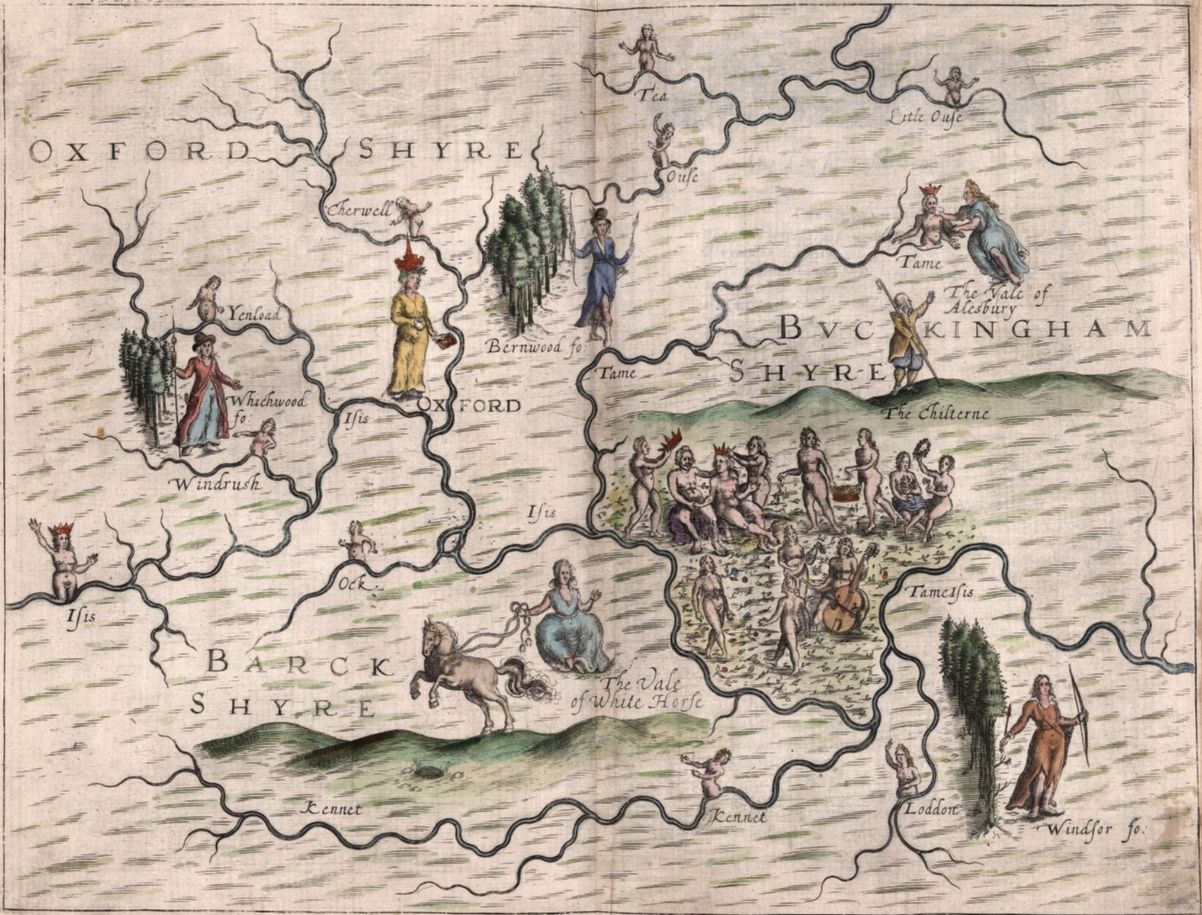 Tea
Litle Ouſe
OXFORD SHYRE
Ouſe
Cherwell
Tame
The Vale of
Alesbury
Yenload
BVCKINGHAM
SHYRE
Bernwood fo:
Tame
Whichwood
fo:
Iſis
OXFORD
The Chilterne
Windrush
Iſis
Ock
Iſis
TameIſis
BARCK
SHYRE
The Vale
of White Horſe
Kennet
Kennet
Loddon
Windſor fo: